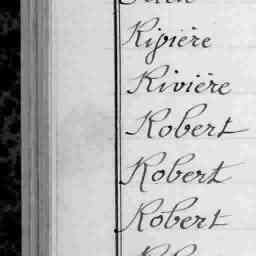 Rivière
Rivière
Robert
Robert
Robert